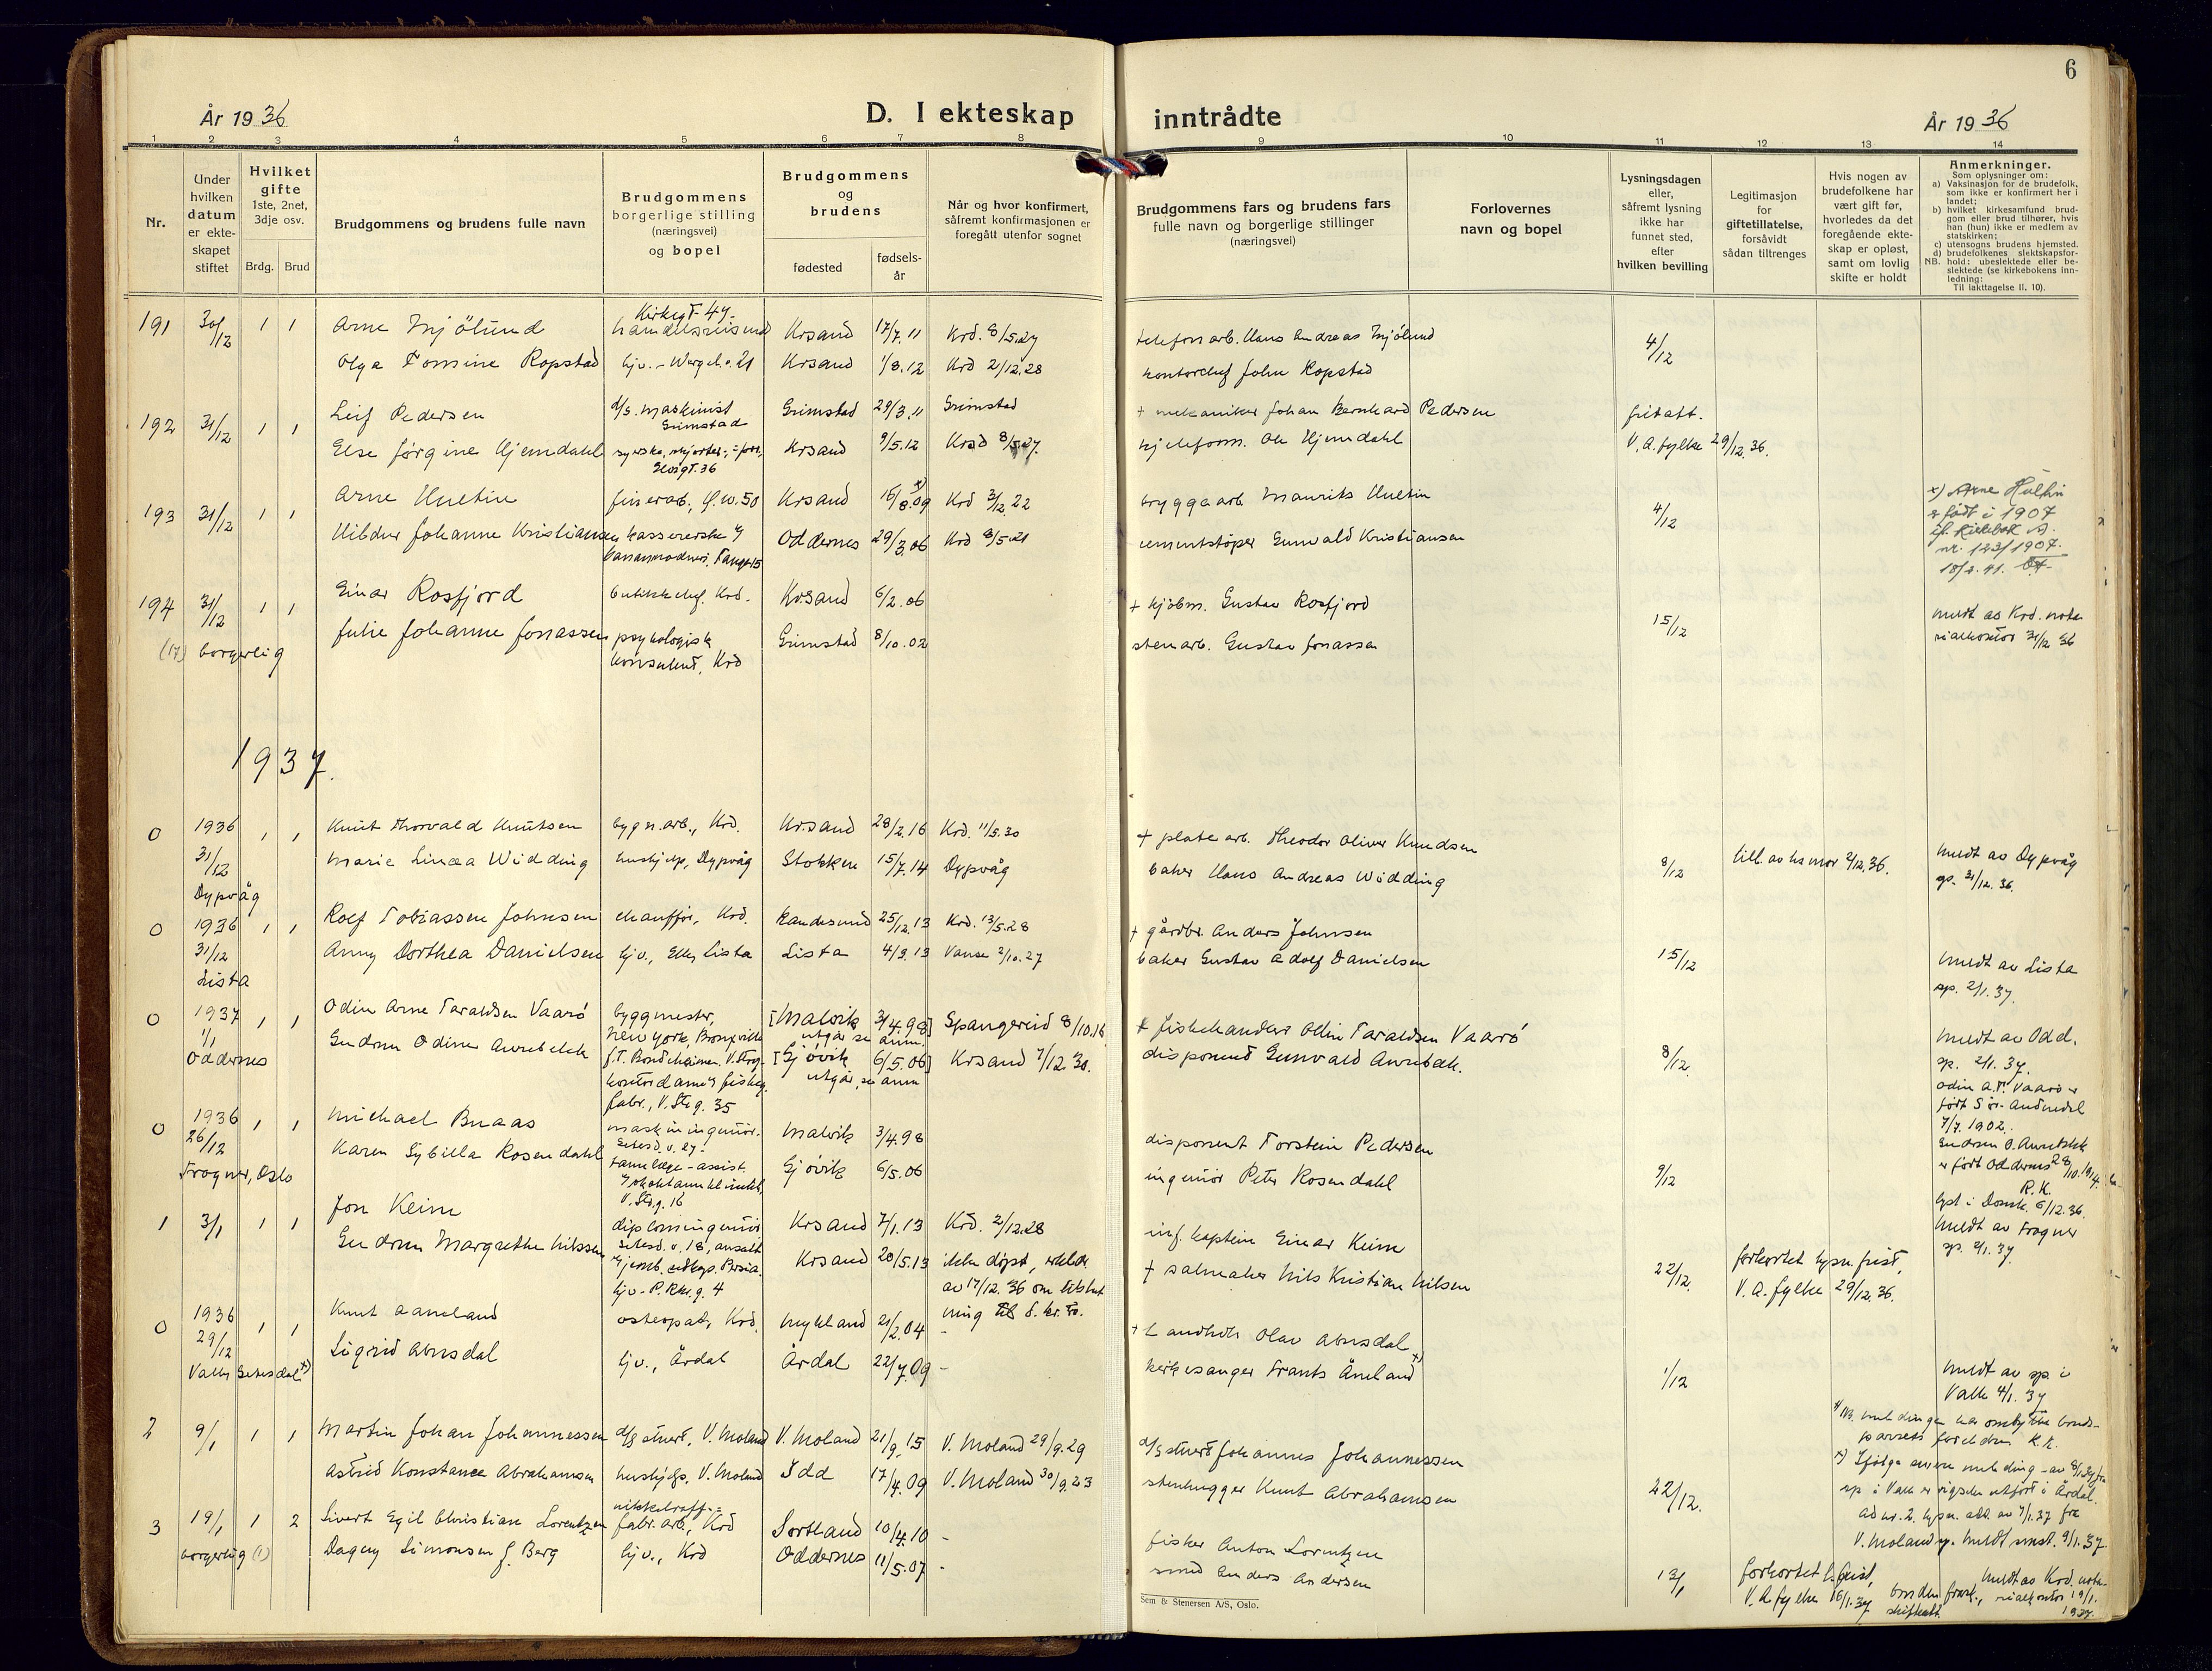 6
År 1936
D. I ekteskap inntrådte
År 1936
1 2 3 4 5 6 7 8 9 10 11 12 13 14
Nr.
Under hvilken datum er ekte-skapet stiftet
Hvilket gifte 1ste, 2net, 3dje osv.
Brdg. Brud
Brudgommens og brudens fulle navn
Brudgommens borgerlige stilling (næringsvei) og bopel
Brudgommens og brudens
fødested
fødsels-år
Når og hvor konfirmert, såfremt konfirmasjonen er foregått utenfor sognet
Brudgommens fars og brudens fars fulle navn og borgerlige stillinger (næringsvei)
Forlovernes navn og bopel
Lysningsdagen eller, såfremt lysning ikke har funnet sted, efter hvilken bevilling
Legitimasjon for giftetillatelse, forsåvidt sådan tiltrenges
Hvis nogen av brudefolkene har vært gift før, hvorledes da det foregående ekte-skap er opløst, samt om lovlig skifte er holdt
Anmerkninger.
Som oplysninger om:
a) Vaksinasjon for de brudefolk, som ikke er konfirmert her i landet;
b) hvilket kirkesamfund brud-gom eller brud tilhører, hvis han (hun) ikke er medlem av statskirken;
c) utensogns brudens hjemsted.
d) brudefolkenes slektskapsfor-hold: ubeslektede eller be-slektede (se kirkebokens inn-ledning:
NB. Til iakttagelse II. 10).
191 30/12 1 1 Arne Mjölund Kirkegt. 49 handelsreisend Krsand 17/7.11 Krd. 8/5.27 telefonarb. Hans Andreas Mjölund 4/12
Olga Tomine Ropstad hjv. - Wergel.g. 21 Krsand 1/8.12 Krd 2/12.28 kontorchef John Ropstad
192 31/12 1 1 Leif Pedersen d/s. maskinist Grimstad Grimstad 29/3.11 Grimstad + mekaniker Johan Bernhard Pedersen fritatt.
Else Jörgine Hjemdahl Krsand 9/5.12 Krsd 8/5.27. Ole Hjemdahl V. A. fylke 29/12.36.
193 31/12 1 1 Arne Hultin Krsand 16/8.09 x) Krd 3/12 22 bryggearb. Maurits Hultin 4/12
x) Arne Hultin er født i 1907 jf. Kirkebok nr. 123/1907. 18/2.41.
Hildur Johanne Kristiansen kassererske Oddernes 29/3.06 Krd 8/5.21 cementstöper Gunvald Kristiansen
194 31/12 1 1 Einar Rosfjord butikkchef. Krd. Krsand 6/2.06 + kjöbm. Gustav Rosfjord 15/12 meldt av Krd. nota-rialkontor 31/12 36
(17) borgerlig Julie Johanne Jonassen psykologisk konsulent, Krd Grimstad 8/10.02 stenarb. Gustav Jonassen
1937.
0 1936 31/12 Dypvåg 1 1 Knut Thorvald Knutsen bygn.arb., Krd. Krsand 28/2.16 Krd. 11/5.30 + platearb. Theodor Oliver Knudsen
Marie Linea Widding hushjelp, Dypvåg Stokken 15/7.14 Dypvåg baker Hans Andreas Widding 8/12 meldt av Dypvåg sp. 31/12.36.
0 1936 31/12 Lista 1 1 Rolf Tobiassen Johnsen chauffør, Krd. Randesund 25/12.13 Krd. 13/5.28 + gårdbr. Anders Johnsen
Anny Dorthea Danielsen hjv., Lista Lista 4/9.13 Vanse 2/10.27 baker Gustav Adolf Danielsen 15/12 meldt av Lista sp. 2/1.37.
0 1937 1/1 Oddernes 1 1 Odin Arne Taraldsen Vaarö byggmester, New York, Bronxville [Malvik 3/4.98] utgår se anm. Spangereid 8/10.16 + fiskehandler Odin Taraldsen Vaarö
Gudrun Odine Aurebekk kontordame [Gjøvik 6/5.06] utgår, se anm Krsand 7/12.30. disponent Gunvald Aurebek. 8/12
meldt av Odd. sp. 2/1.37. Odin A.T. Vaarö er født Sör-Audnedal 7/7.1902. Gudrun O. Aurebekk er født Oddernes 28/10.1914. R.K.
0 1936 26/12 Frogner, Oslo 1 1 Michael Buaas maskiningeniør. Setesd.v. 27 Malvik 3/4.98 disponent Torstein Pedersen
Karen Sybilla Rosendahl tannlæge-assist. V. Str.g. 16 Gjøvik 6/5.06 ingeniör Peter Rosendahl 9/12 lyst i Domk. 6/12.36. meldt av Frogner sp. 2/1.37
1 3/1 1 1 Jon Keim diplomingeniör Setesd.v. 18, ansatt Krsand 7/1.13 Krd. 2/12.28 inf. kaptein Einar Keim
Gudrun Margrethe Nilssen hjv. - Krsand 20/5.13 ikke döpt, av 17/12.36 + salmaker Nils Kristian Nilsen 22/12. forkortet lysn. frist, V. A. fylke 29/12.36.
0 1936 29/12 Valle Setesdal x) 1 1 Knut Aaneland osteopat, Krd. Mykland 21/2.04 - + Landh. Olav Abusdal
Sigrid Abusdal hjv., Årdal Årdal 22/7.09 - kirkesanger Frants Åneland x) 1/12 meldt av sp. i Valle 4/1.37
NB. meldingen har ombyttet brude-parrets foreldre R.K.
x) Ifölge senere melding av 8/1.37 fra sp i Valle er vigselen utført i Årdal.
2 9/1 1 1 Martin Johan Johannessen d/s stuert, V. Moland V. Moland 21/9.15 V. Moland 29/9.29 d/s stuert Johannes Johannessen
Astrid Konstance Abrahamsen hushjelp, V. Moland Idd 17/4.09 V. Moland 30/9.23 stenhugger Knut Abrahamsen 22/12.
ad nr. 2. lysn. att. av 7/1.37 fra V. Moland sp. meldt smst. 9/1.37
3 19/1 borgerlig (1) 1 2 Sivert Egil Christian Lorentzen nikkelraff.= fabr.arb., Krd Sortland 10/4.10 - fisker Anton Lorentzen
Dagny Simonsen f. Berg hjv., Krd Oddernes 11/5.07 - smed Anders Andersen 13/1 forkortet l. frist, V. A fylke 16/1.37 bruden frask., skifteatt. meldt av Krd. nota-rialkontor 19/1. 1937.
Sem & Stenersen A/S, Oslo.